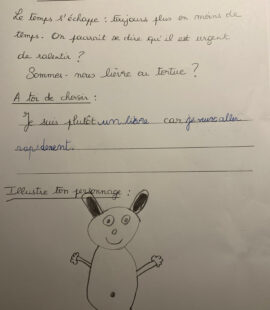 Le temps s'échappe : toujours plus en moins de
temps. On pourrait se dire qu'il est urgent
de ralentir ?
Sommes-nous lièvre ou tortue ?
A toi de choisir :
Je suis plutôt un lièvre car je veux aller
rapidement.
Illustre ton personnage :